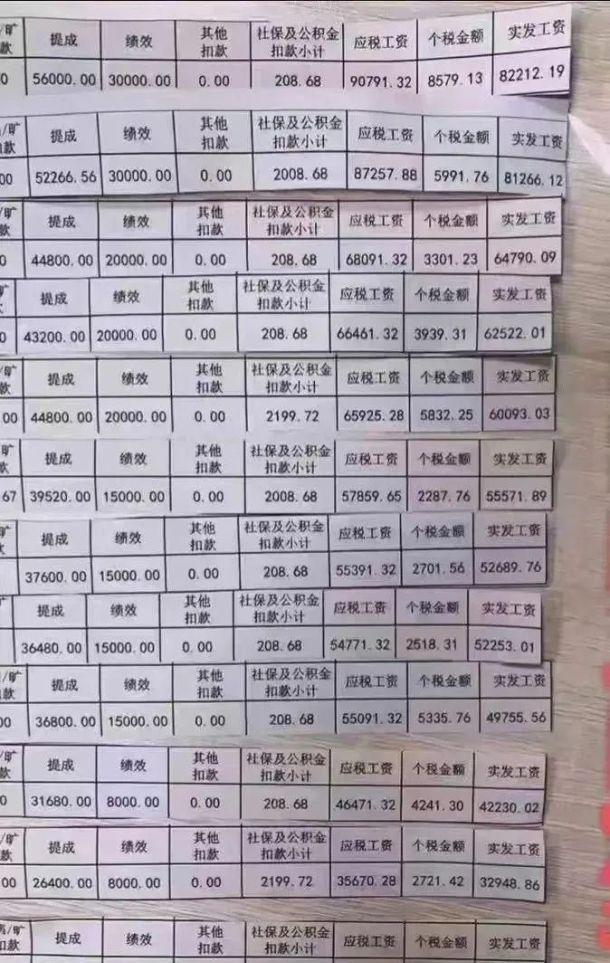 /旷 提成 绩效 其他 社保及公积金 应税工资 个税金额 实发工资
款 扣款 扣款小计
0 56000.00 30000.00 0.00 208.68 90791.32 8579.13 82212.19
/旷 提成 绩效 其他 社保及公积金 应税工资 个税金额 实发工资
款 扣款 扣款小计
00 52266.56 30000.00 0.00 2008.68 87257.88 5991.76 81266.12
/旷 提成 绩效 其他 社保及公积金 应税工资 个税金额 实发工资
款 扣款 扣款小计
0 44800.00 20000.00 0.00 208.68 68091.32 3301.23 64790.09
/旷 提成 绩效 其他 社保及公积金 应税工资 个税金额 实发工资
款 扣款 扣款小计
0 43200.00 20000.00 0.00 208.68 66461.32 3939.31 62522.01
/旷 提成 绩效 其他 社保及公积金 应税工资 个税金额 实发工资
款 扣款 扣款小计
00 44800.00 20000.00 0.00 2199.72 65925.28 5832.25 60093.03
/旷 提成 绩效 其他 社保及公积金 应税工资 个税金额 实发工资
款 扣款 扣款小计
67 39520.00 15000.00 0.00 2008.68 57859.65 2287.76 55571.89
旷 提成 绩效 其他 社保及公积金 应税工资 个税金额 实发工资
扣款 扣款小计
37600.00 15000.00 0.00 208.68 55391.32 2701.56 52689.76
提成 绩效 其他 社保及公积金 应税工资 个税金额 实发工资
扣款 扣款小计
36480.00 15000.00 0.00 208.68 54771.32 2518.31 52253.01
/旷 提成 绩效 其他 社保及公积金 应税工资 个税金额 实发工资
款 扣款 扣款小计
00 36800.00 15000.00 0.00 208.68 55091.32 5335.76 49755.56
/旷 提成 绩效 其他 社保及公积金 应税工资 个税金额 实发工资
款 扣款 扣款小计
0 31680.00 8000.00 0.00 208.68 46471.32 4241.30 42230.02
/旷 提成 绩效 其他 社保及公积金 应税工资 个税金额 实发工资
款 扣款 扣款小计
00 26400.00 8000.00 0.00 2199.72 35670.28 2721.42 32948.86
/旷 提成 绩效 其他 社保及公积金 应税工资 个税金额 实发工资
扣款 扣款 扣款小计